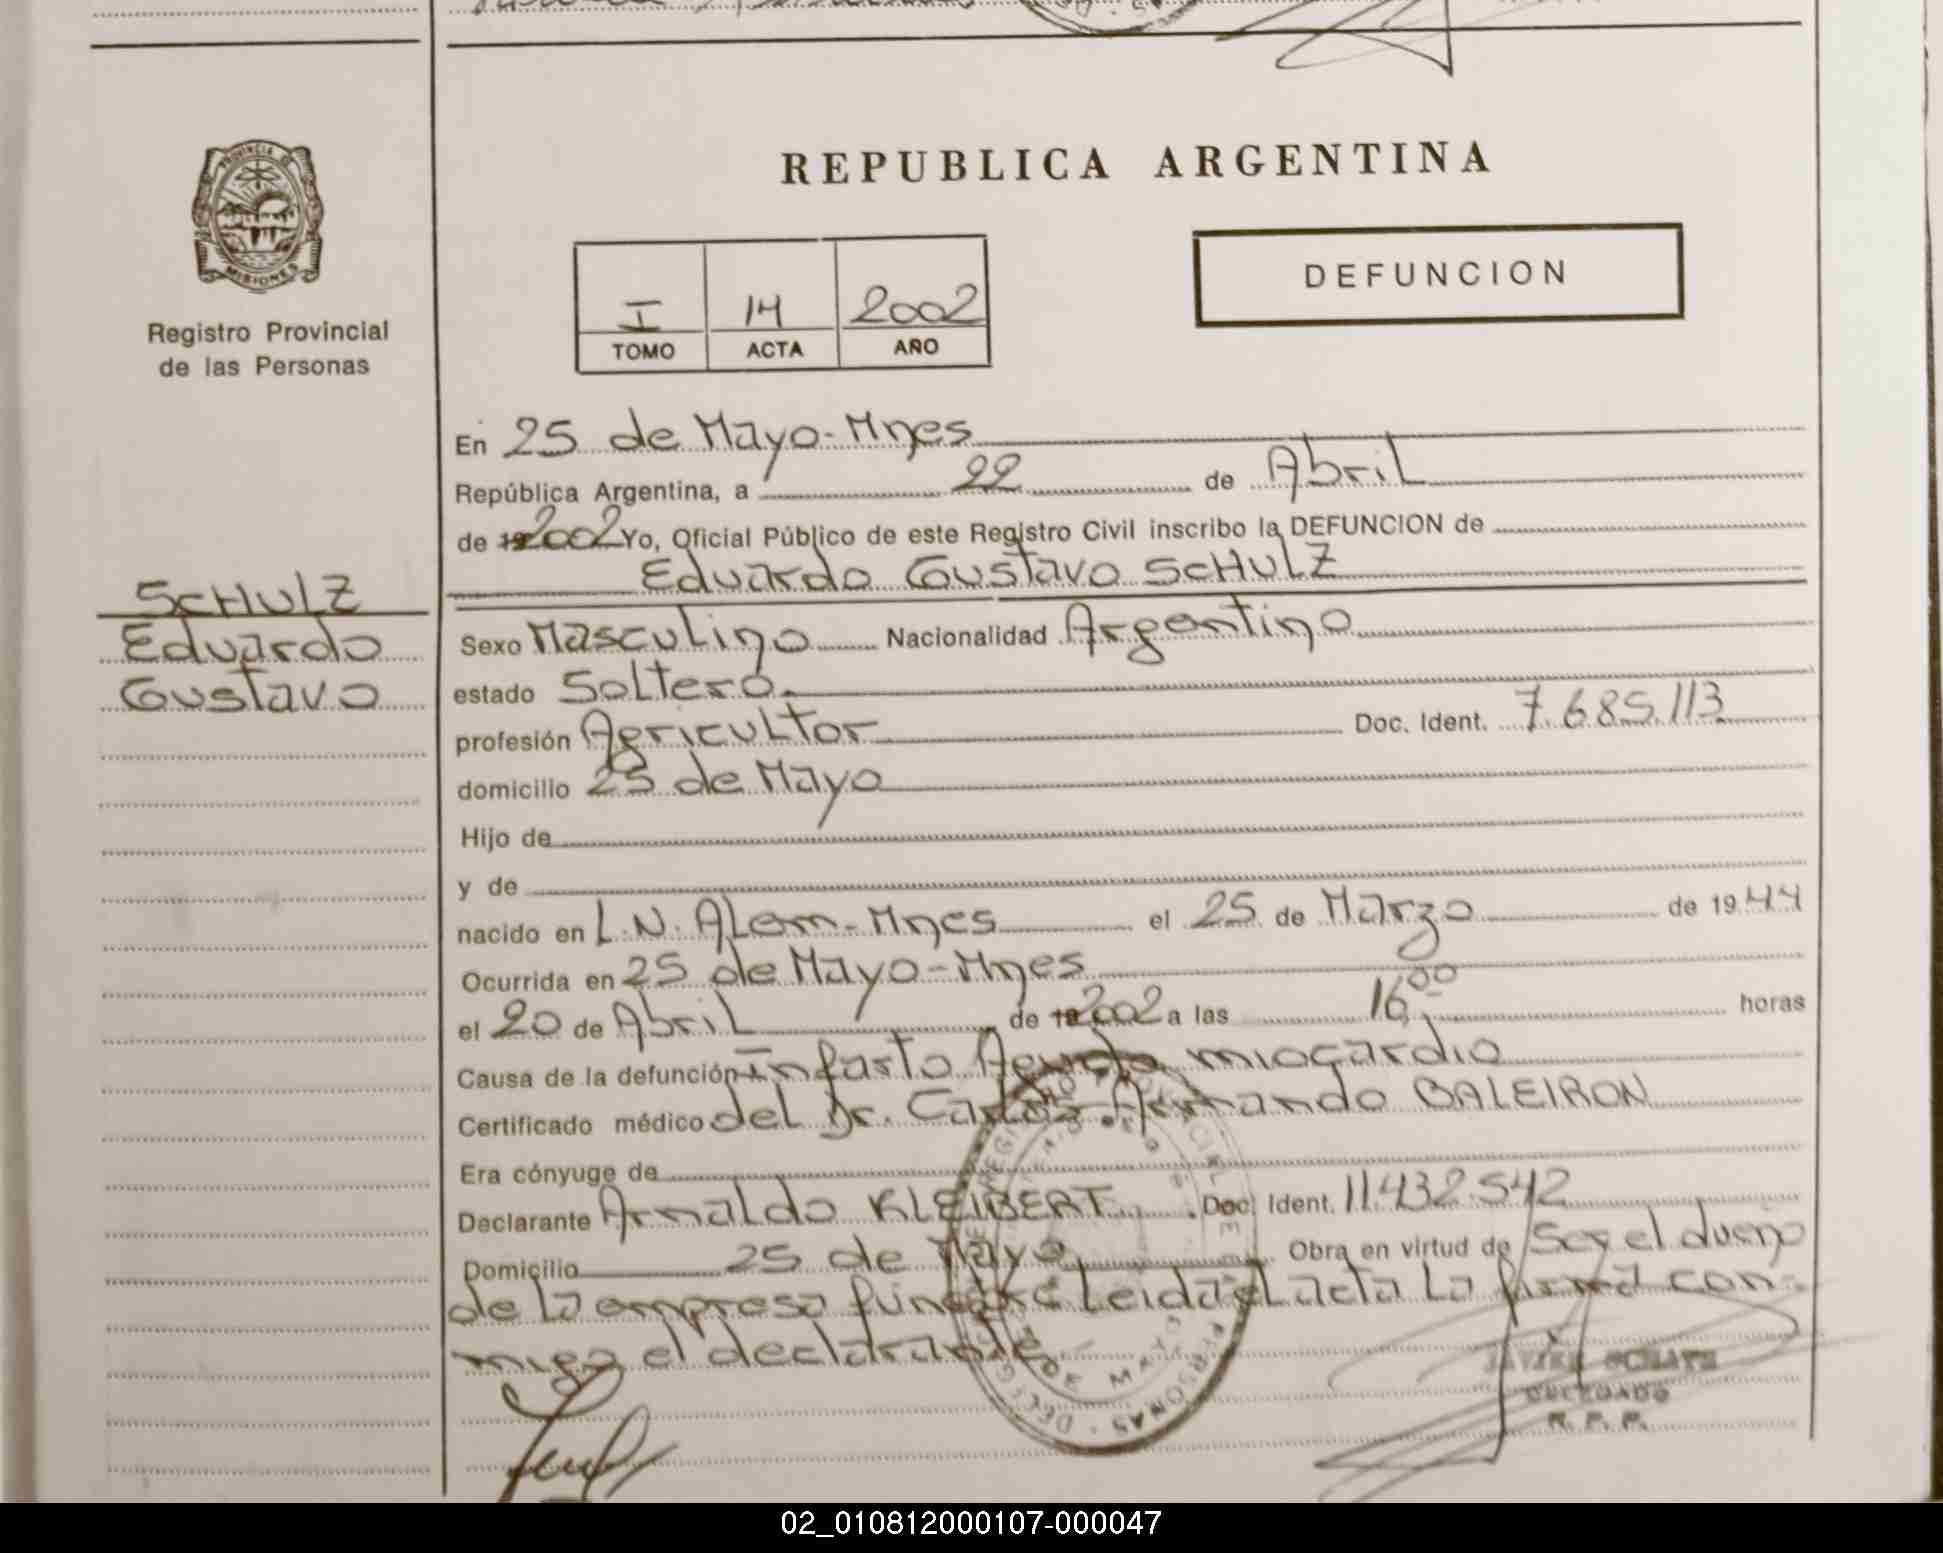 PROVINCIA DE
MISIONES
Registro Provincial
de las Personas
REPUBLICA ARGENTINA
I 14 2002
TOMO ACTA AÑO
DEFUNCION
En 25 de Mayo-Mnes
República Argentina, a 22 de Abril
de 19 2002 Yo, Oficial Público de este Registro Civil inscribo la DEFUNCION de
Eduardo Gustavo SCHULZ
SCHULZ
Eduardo
Gustavo
Sexo Masculino Nacionalidad Argentino
estado Soltero.
profesión Agricultor Doc. Ident. 7.685.113
domicilio 25 de Mayo
Hijo de
y de
nacido en L.N. Alem-Mnes el 25 de Marzo de 1944
Ocurrida en 25 de Mayo-Mnes
el 20 de Abril de 19 2002 a las 16,00 horas
Causa de la defunción Infarto Agudo miocardio
Certificado médico del Dr. Carlos Armando BALEIRON
Era cónyuge de
Declarante Arnaldo KLEIBERT Doc. Ident. 11.432.542
Domicilio 25 de Mayo Obra en virtud de Ser el dueño
de la empresa fúnebre Leida el acta La firma con-
migo el declarante
DELEGADO
R. P. P.
02_010812000107-000047